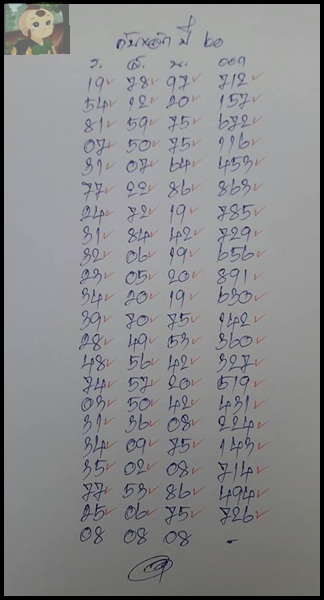 ปี ๖๐
จ. ส. พ. ออก
19 78 97 712
54 12 20 157
81 59 75 672
07 50 75 116
31 07 64 453
77 22 86 863
24 72 19 785
31 84 42 729
32 06 19 656
23 05 20 891
34 20 19 630
39 70 75 142
28 49 53 360
48 56 42 327
74 57 20 519
03 50 42 431
31 36 08 224
34 09 75 143
35 02 08 714
77 53 86 494
25 06 75 726
08 08 08 -